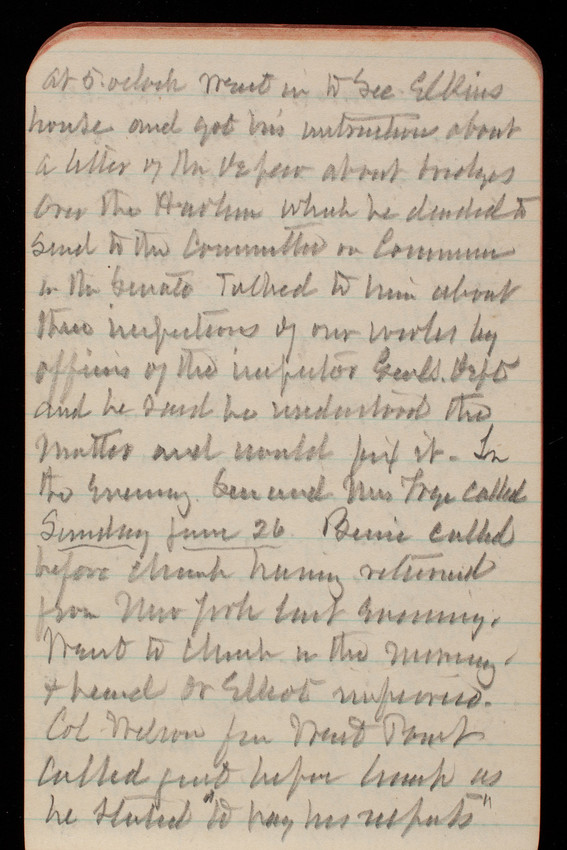 At 5 oclock went in to Sec Elkins
house and got his instructions about
a letter of the Dept about bridges
over the Harlem which he decided to
send to the Committee on Commerce
in the Senate Talked to him about
these inspections of our works by
officers of the inspector Genls. Dept
and he said he understood the
matter and would fix it - In
the Evening Gen and Mrs called
Sunday June 26 called
before church having returned
from New York last Evening.
Went to church in the morning
& heard Dr Elliott
Col. Wilson from West Point
called just before lunch as
he stated "to pay his respects"